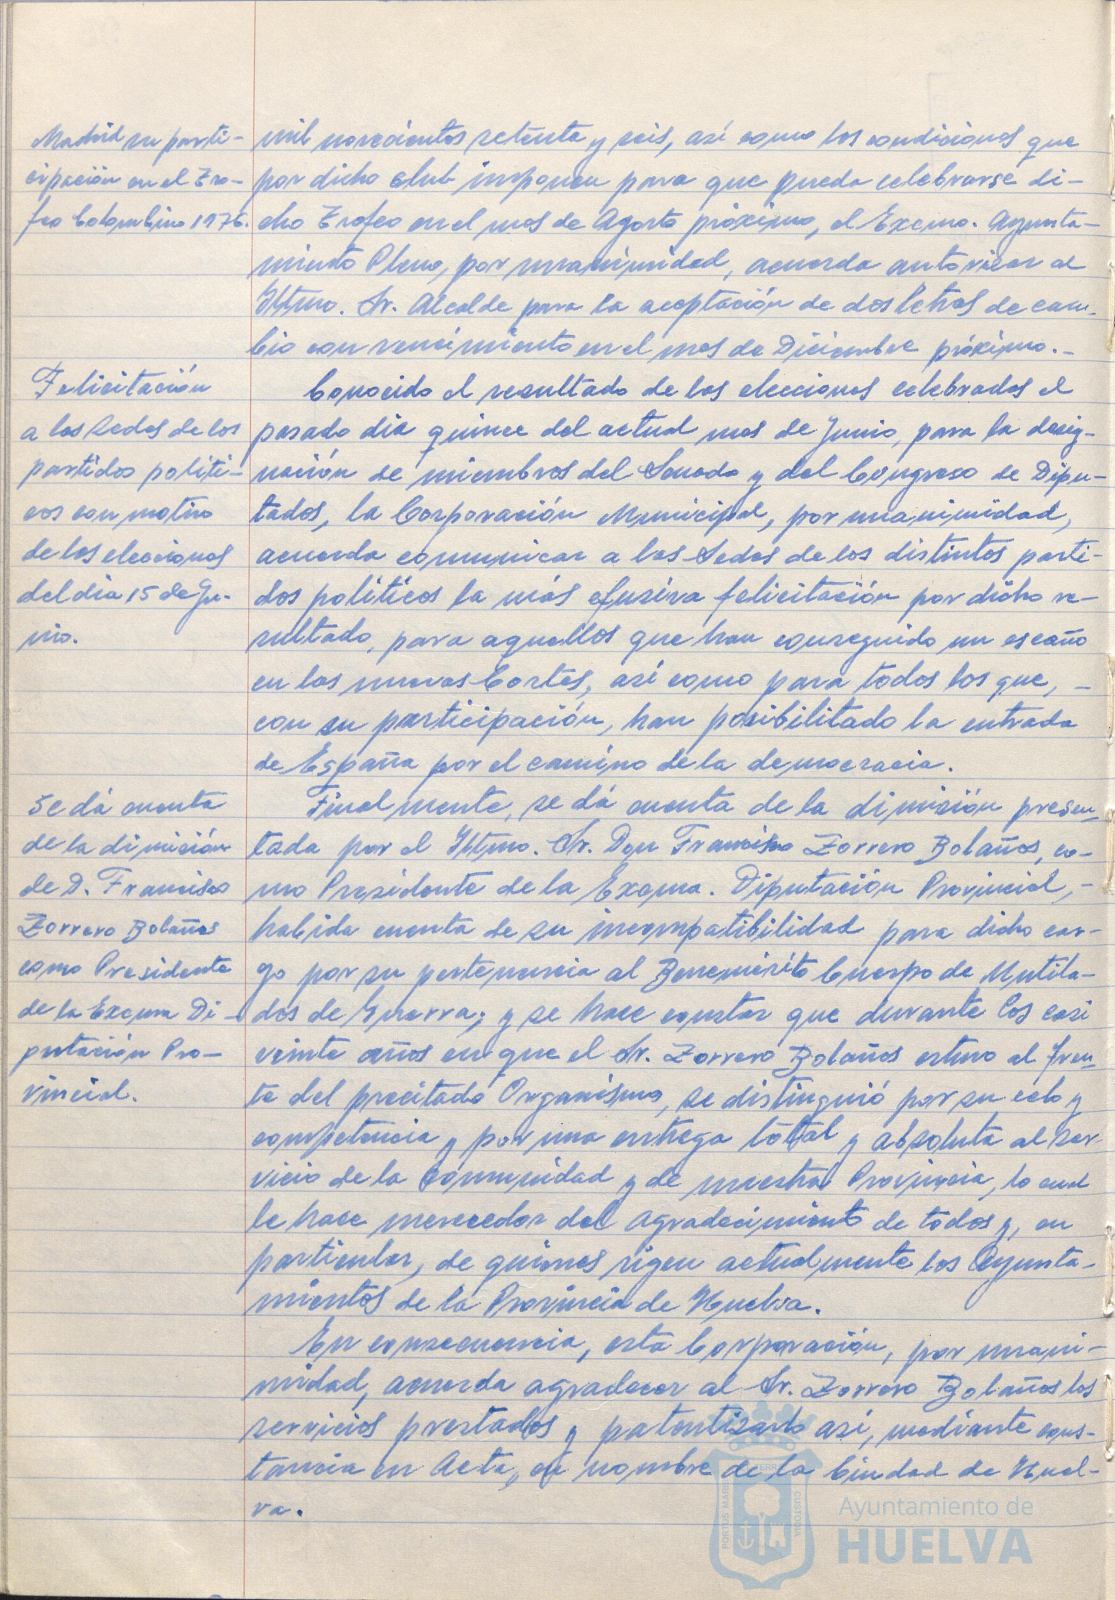 Madrid su parti-
cipación en el Tro-
feo Colombino 1976.
mil novecientos setenta y seis, así como las condiciones que
por dicho club imponen para que pueda celebrarse di-
cho Trofeo en el mes de Agosto próximo, el Excmo. Ayunta-
miento Pleno, por unanimidad, acuerda autorizar al
Iltmo. Sr. Alcalde para la aceptación de dos letras de cam-
bio con vencimiento en el mes de Diciembre próximo.-
Felicitación
a las Sedes de los
partidos políti-
cos con motivo
de las elecciones
del día 15 de Ju-
nio.
Conocido el resultado de las elecciones celebradas el
pasado día quince del actual mes de Junio, para la desig-
nación de miembros del Senado y del Congreso de Dipu-
tados, la Corporación Municipal, por unanimidad,
acuerda comunicar a las Sedes de los distintos parti-
dos políticos la más efusiva felicitación por dicho re-
sultado, para aquellos que han conseguido un escaño
en las nuevas Cortes, así como para todos los que, -
con su participación, han posibilitado la entrada
de España por el camino de la democracia.
Se dá cuenta
de la dimisión
de D. Francisco
Zorrero Bolaños
como Presidente
de la Excma Di-
putación Pro-
vincial.
Finalmente, se dá cuenta de la dimisión presen-
tada por el Iltmo. Sr. Don Francisco Zorrero Bolaños, co-
mo Presidente de la Excma. Diputación Provincial, -
habida cuenta de su incompatibilidad para dicho car-
go por su pertenencia al Benemérito Cuerpo de Mutila-
dos de Guerra; y se hace constar que durante los casi
veinte años en que el Sr. Zorrero Bolaños estuvo al fren-
te del precitado Organismo, se distinguió por su celo y
competencia y por una entrega total y absoluta al ser
vicio de la Comunidad y de nuestra Provincia, lo cual
le hace merecedor del agradecimiento de todos y, en
particular, de quienes rigen actualmente los Ayunta-
mientos de la Provincia de Huelva.
En consecuencia, esta Corporación, por unani-
midad, acuerda agradecer al Sr. Zorrero Bolaños los
servicios prestados y patentizarlo así, mediante cons-
tancia en Acta, en nombre de la Ciudad de Huel-
va.
PORTUS MARIS
CUSTODIA
Ayuntamiento de
HUELVA